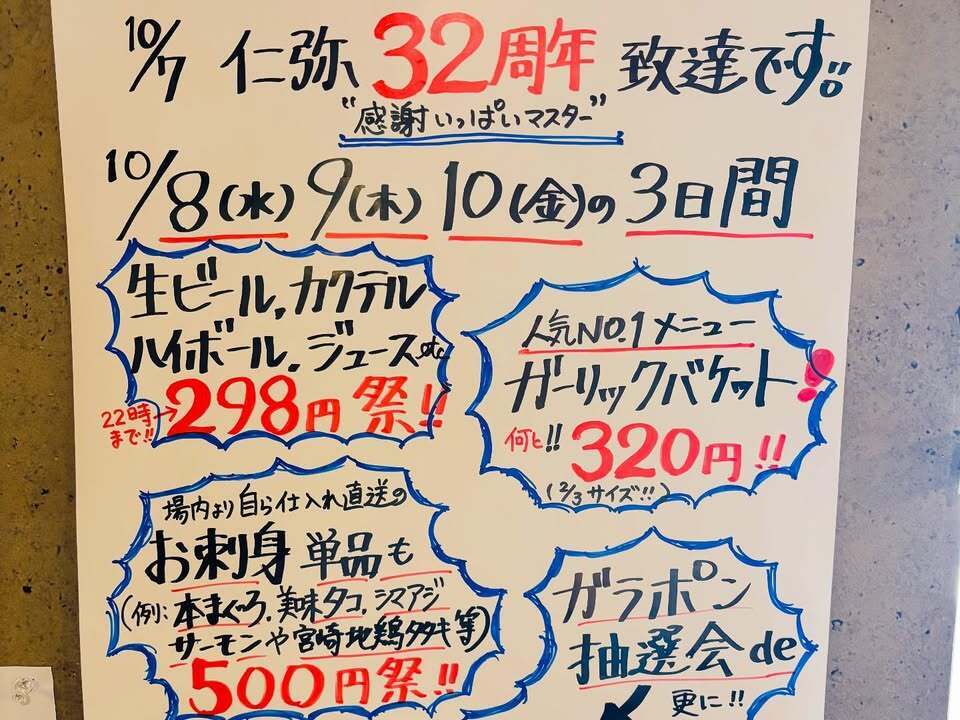 10/7 仁弥 32周年 致達です!!
"感謝いっぱいマスター"
10/8(水) 9(木) 10(金)の3日間
生ビール,カクテル
ハイボール.ジュースetc
22時まで!!→298円祭!!
人気NO.1メニュー
ガーリックバケット!
何と!! 320円!!
(2/3サイズ!!)
場内より自ら仕入れ直送の
お刺身 単品も
(例:本まぐろ.美味タコ.シマアジ
サーモンや宮崎地鶏タタキ等)
500円祭!!
ガラポン
抽選会de
更に!!